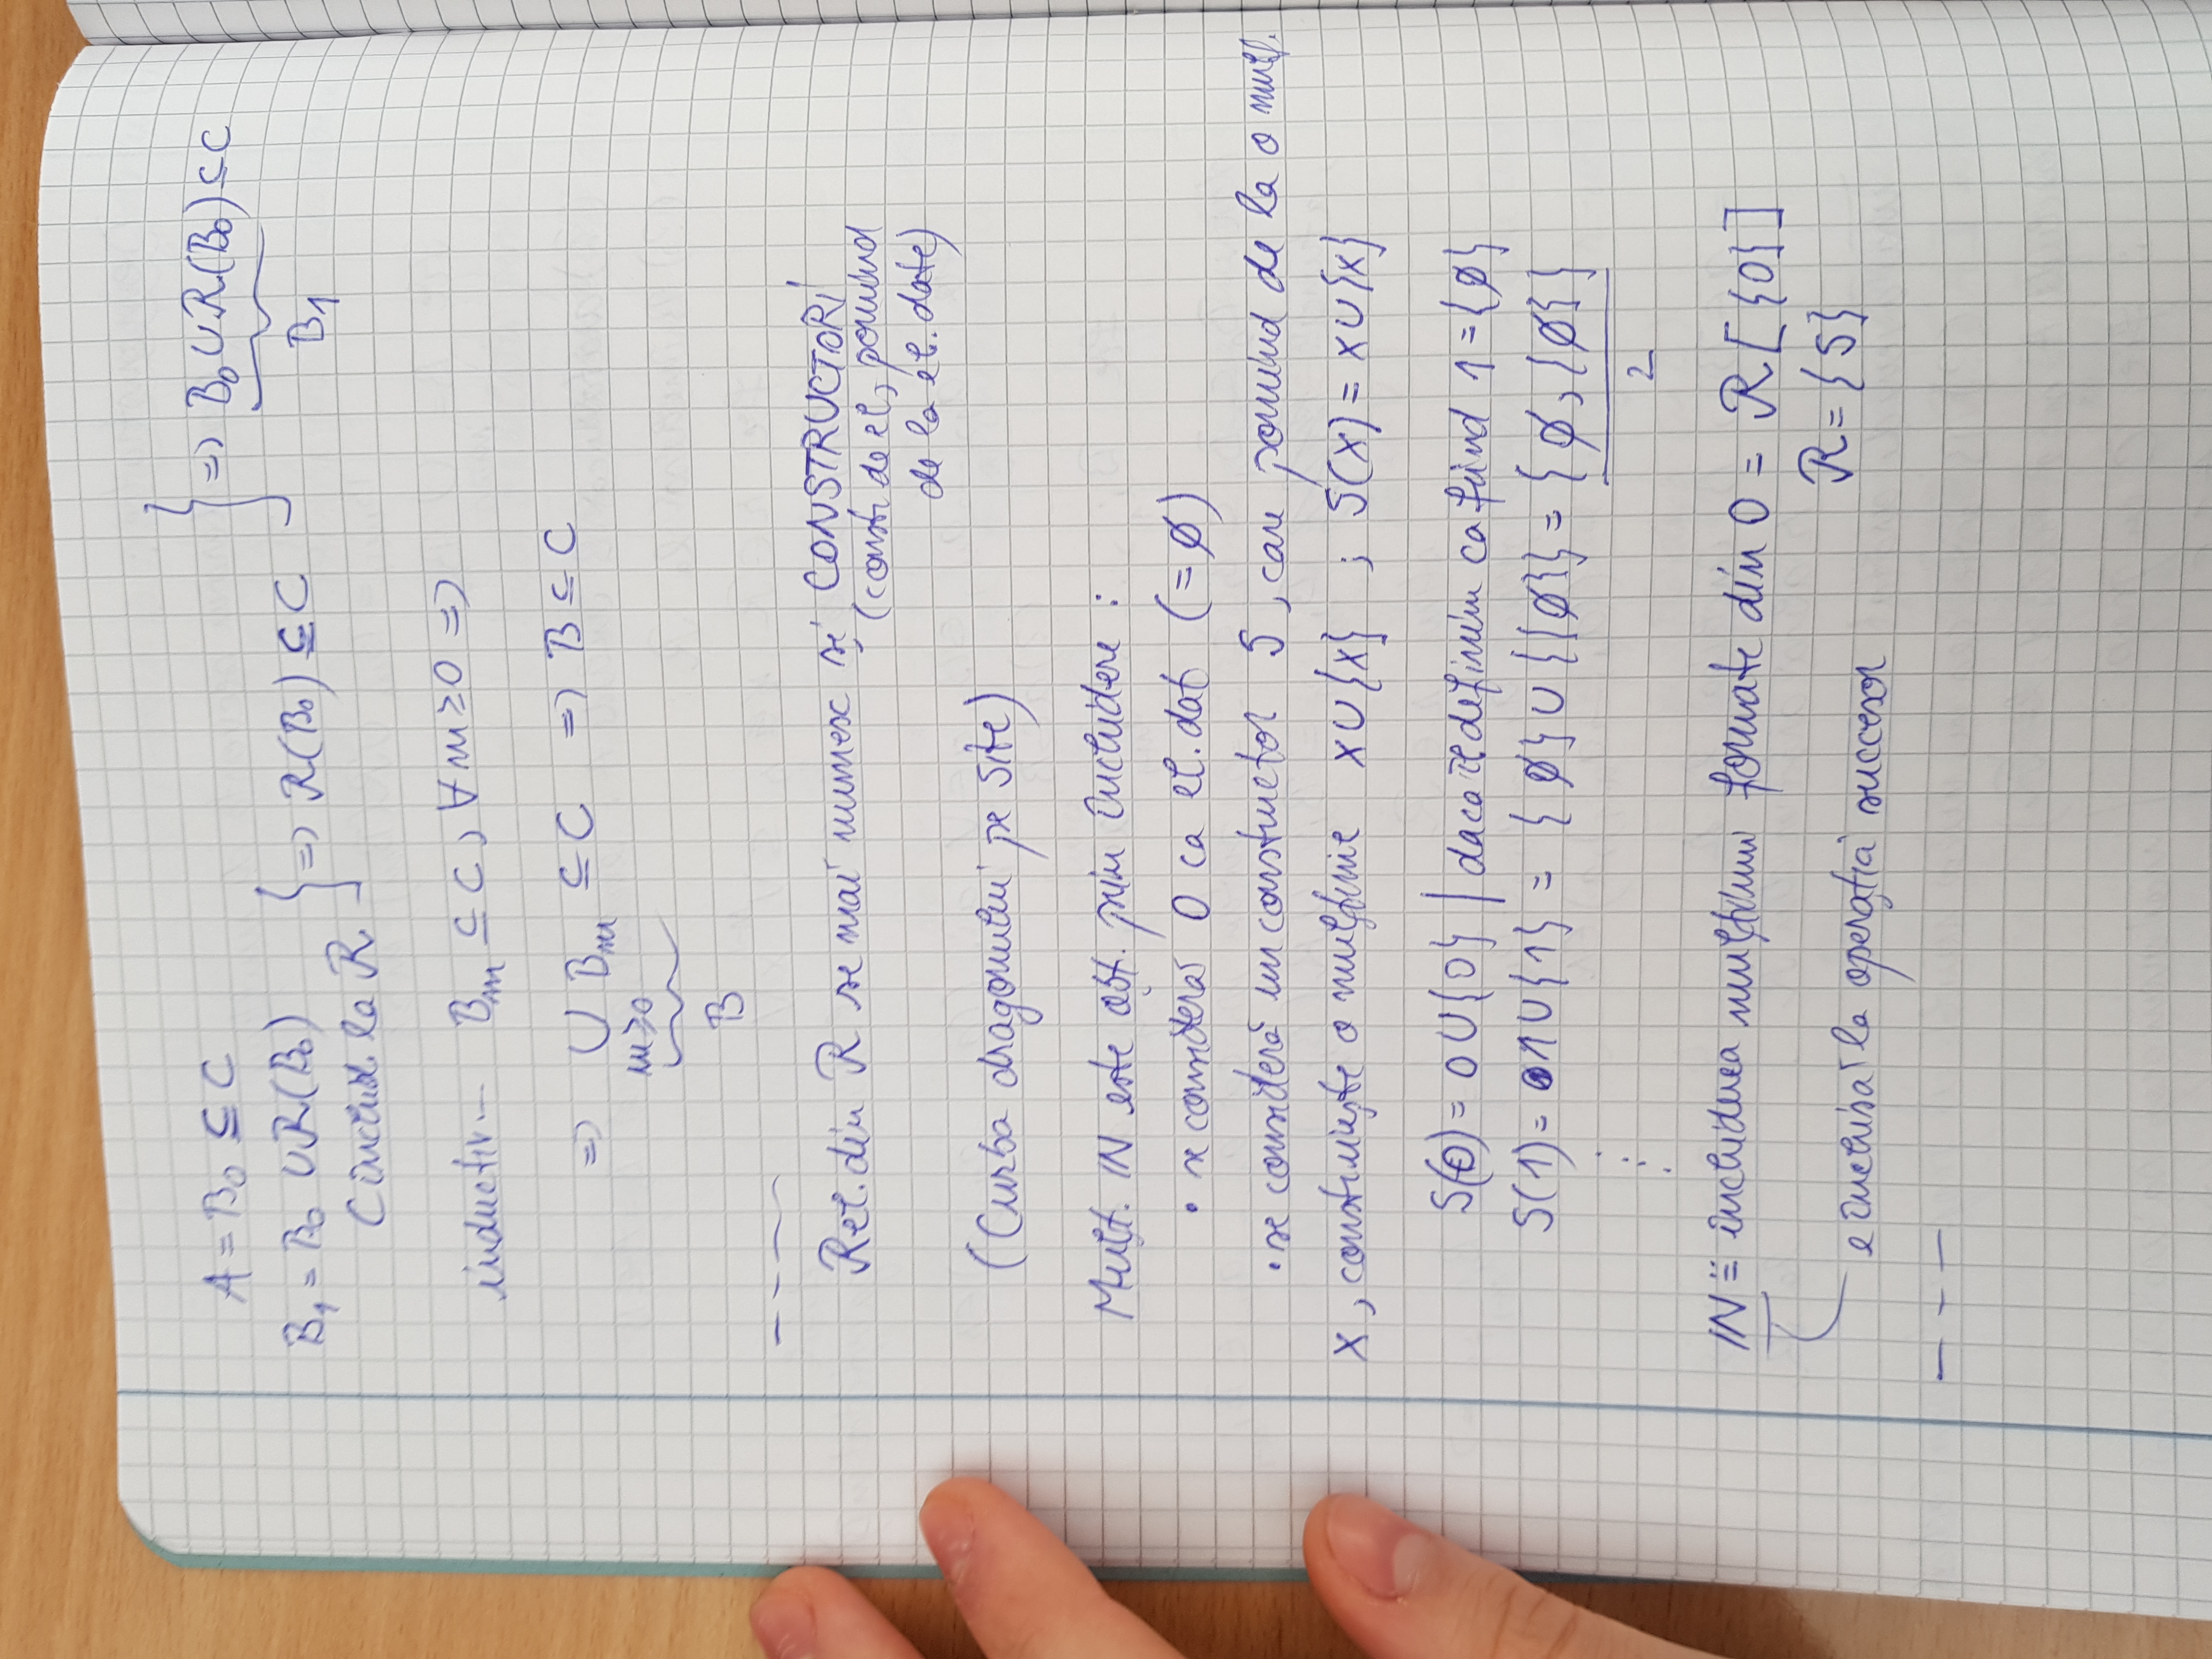 A = B₀ ⊆ C
B₁ = B₀ ∪ R(B₀) } => R(B₀) ⊆ C } => B₀ ∪ R(B₀) ⊆ C
C închisă la R
B₁
inductiv - Bₘ ⊆ C, ∀ m ≥ 0 =>
=> ∪ Bₘ ⊆ C => B ⊆ C
m ≥ 0
B
Rel. din R se mai numesc și CONSTRUCTORI
(constr. de el, pornind
de la el. date)
(Curba dragonului pe site)
Mulț. ℕ este obț. prin închidere :
• se consideră 0 ca el. dat (= ∅)
• se consideră un constructor S, care pornind de la o mulț.
x, construiește o mulțime x ∪ {x} ; S(x) = x ∪ {x}
S(0) = 0 ∪ {0} | daca îl definim ca fiind 1 = {∅}
S(1) = 1 ∪ {1} = {∅} ∪ {{∅}} = {∅, {∅}}
2
ℕ = închiderea mulțimii formate din 0 = R[{0}]
R = {S}
e închisă la operația succesor